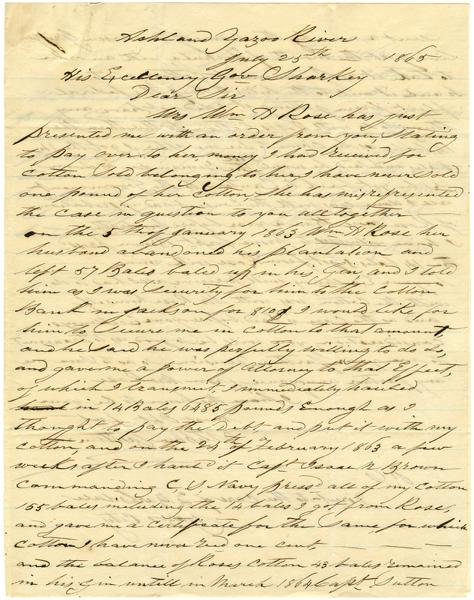 Ashland Yazoo River
July 25th 1865
His Excellency Gov Sharkey
Dear Sir
Mrs Wm H Rose has just
presented me with an order from you, Stating
to pay over to her, money I had received for
Cotton Sold belonging to her, I have never sold
one pound of her Cotton, She has misrepresented
the case in question to you all together
on the 5th of January 1863 Wm H Rose her
husband abandoned his plantation and
left 57 Bales baled up in his Gin, and I told
him as I was Security for him to the Cotton
Bank in Jackson for 810$ I would like for
him to secure me in cotton to that amount
and he said he was perfectly willing to do so,
and gave me a power of Attorney to that Effect,
of which I transmit I immediately hauled
in 14 Bales 6485 pounds Enough as I
thought to pay the debt and put it with my
cotton, and on the 24th of February 1863 a few
weeks after I hauld it Capt Isaac N Brown
Commanding C S Navy press'd all of my cotton
155 bales including the 14 bales I got from Rose,
and gave me a Certificate for the same, for which
cotton I have never had one cent,
and the balance of Roses Cotton 43 bales remained
in his Gin untill in March 1864 Capt Sutton